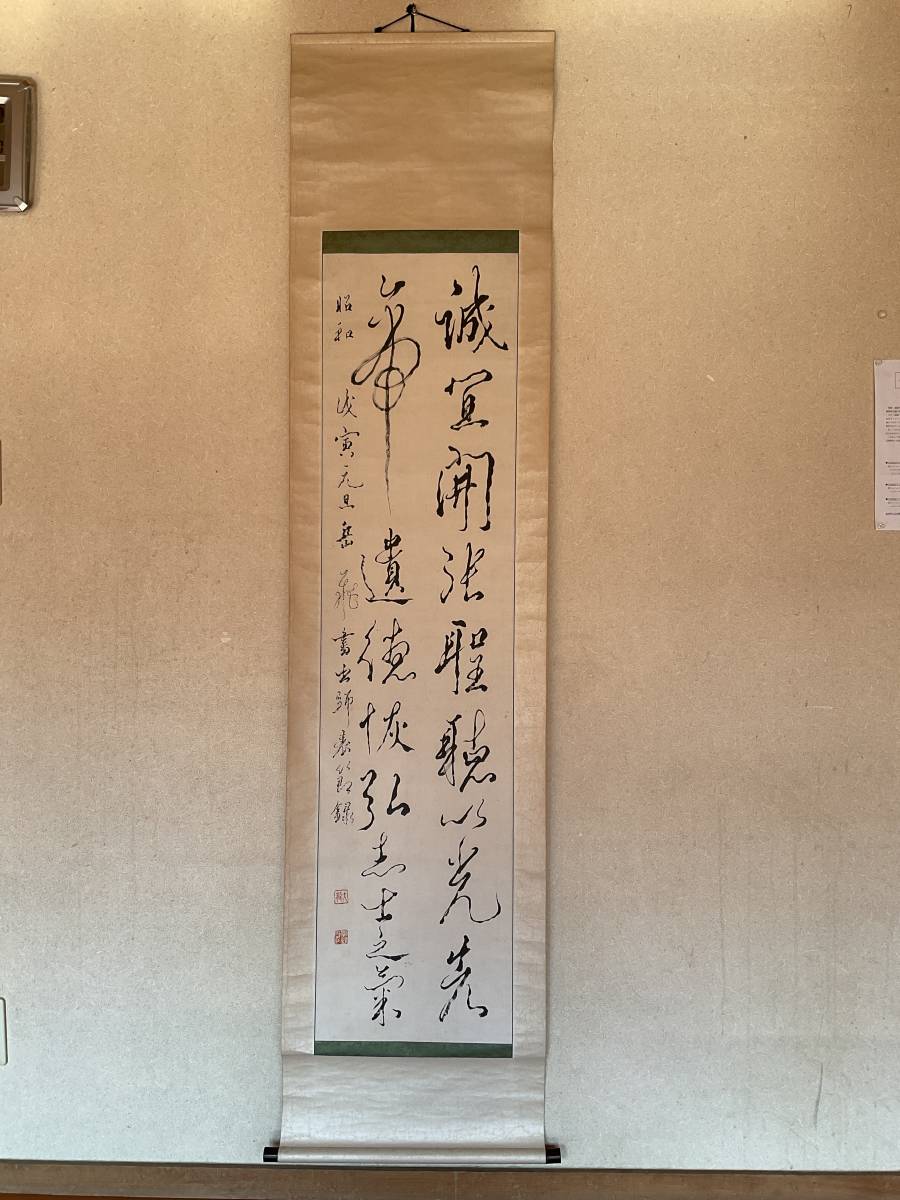 誠宜開張聖聽以光先
帝遺德恢弘志士之氣
昭和戊寅元旦岳龍書出師表節録